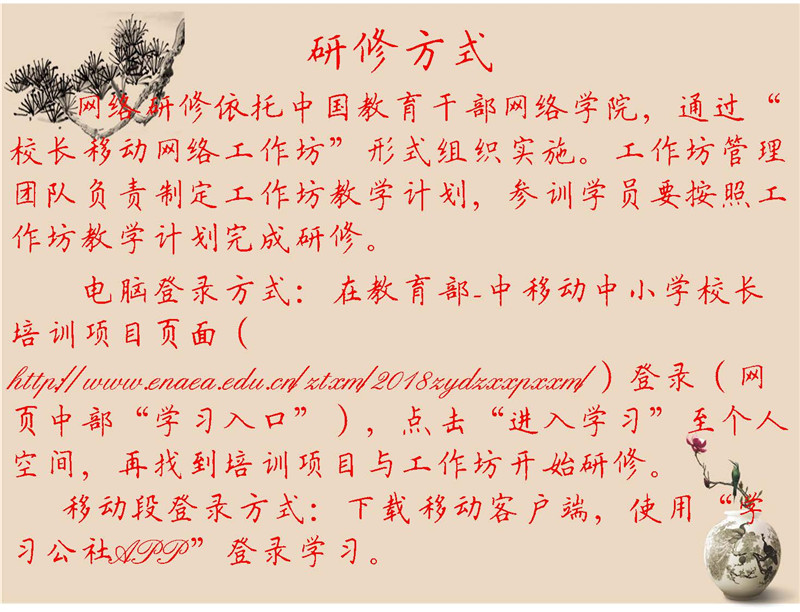 研修方式
网络研修依托中国教育干部网络学院，通过“
校长移动网络工作坊”形式组织实施。工作坊管理
团队负责制定工作坊教学计划，参训学员要按照工
作坊教学计划完成研修。
电脑登录方式：在教育部-中移动中小学校长
培训项目页面（
http://www.enaea.edu.cn/ztxm/2018zydzxxpxxm/）登录（网
页中部“学习入口”），点击“进入学习”至个人
空间，再找到培训项目与工作坊开始研修。
移动段登录方式：下载移动客户端，使用“学
习公社APP”登录学习。